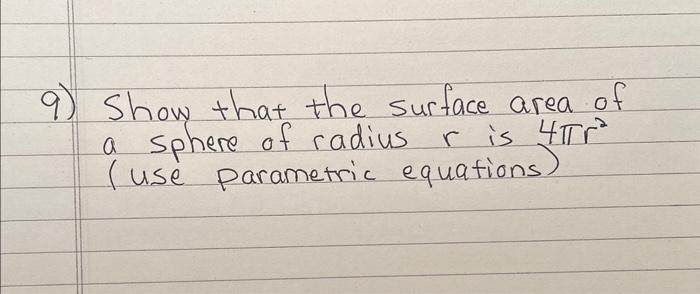 9) Show that the surface area of
a sphere of radius r is 4πr²
(use parametric equations)